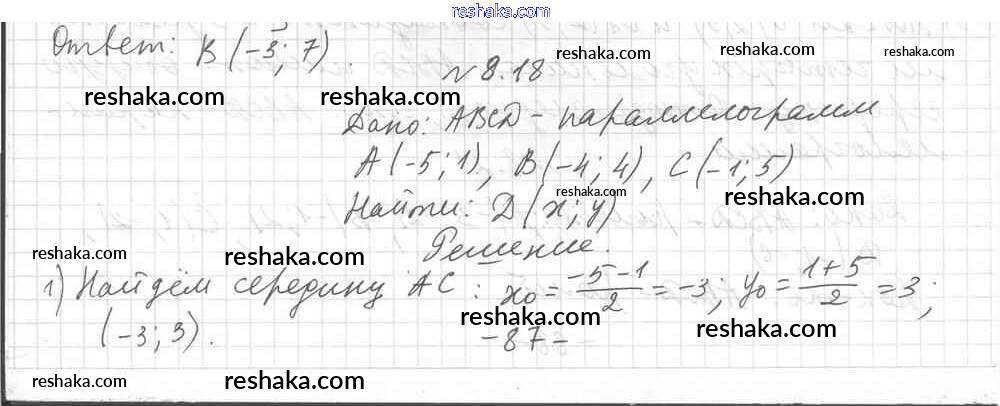 reshaka.com
Ответ: B(-3; 7).
reshaka.com
reshaka.com
№ 8.18
reshaka.com
Дано: ABCD - параллелограмм
reshaka.com
A(-5; 1), B(-4; 4), C(-1; 5)
reshaka.com
reshaka.com
Найти: D(x; y)
reshaka.com
Решение.
reshaka.com
1) Найдём середину AC: x₀ = (-5-1)/2 = -3; y₀ = (1+5)/2 = 3;
reshaka.com
reshaka.com
(-3; 3).
-87-
reshaka.com
reshaka.com
reshaka.com